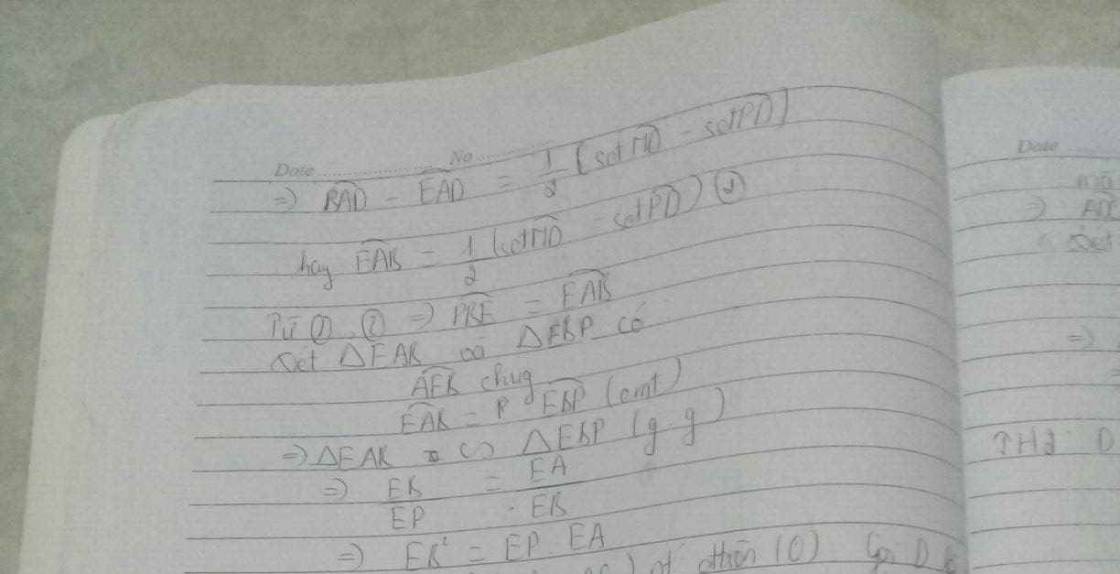 Date No
=> BAD - EAD = 1/2 (sđ MD - sđ PD)
hay EAB = 1/2 (sđ MD - sđ PD) (2)
Từ (1), (2) => PBE = EAB
Xét △EAB và △EBP có
AEB chung
EAB = P EBP (cmt)
=> △EAB ∽ △EBP (g.g)
=> EB/EP = EA/EB
=> EB² = EP. EA
(O) Gọi D
Date
=> AD
Xét
=>
TH2: D